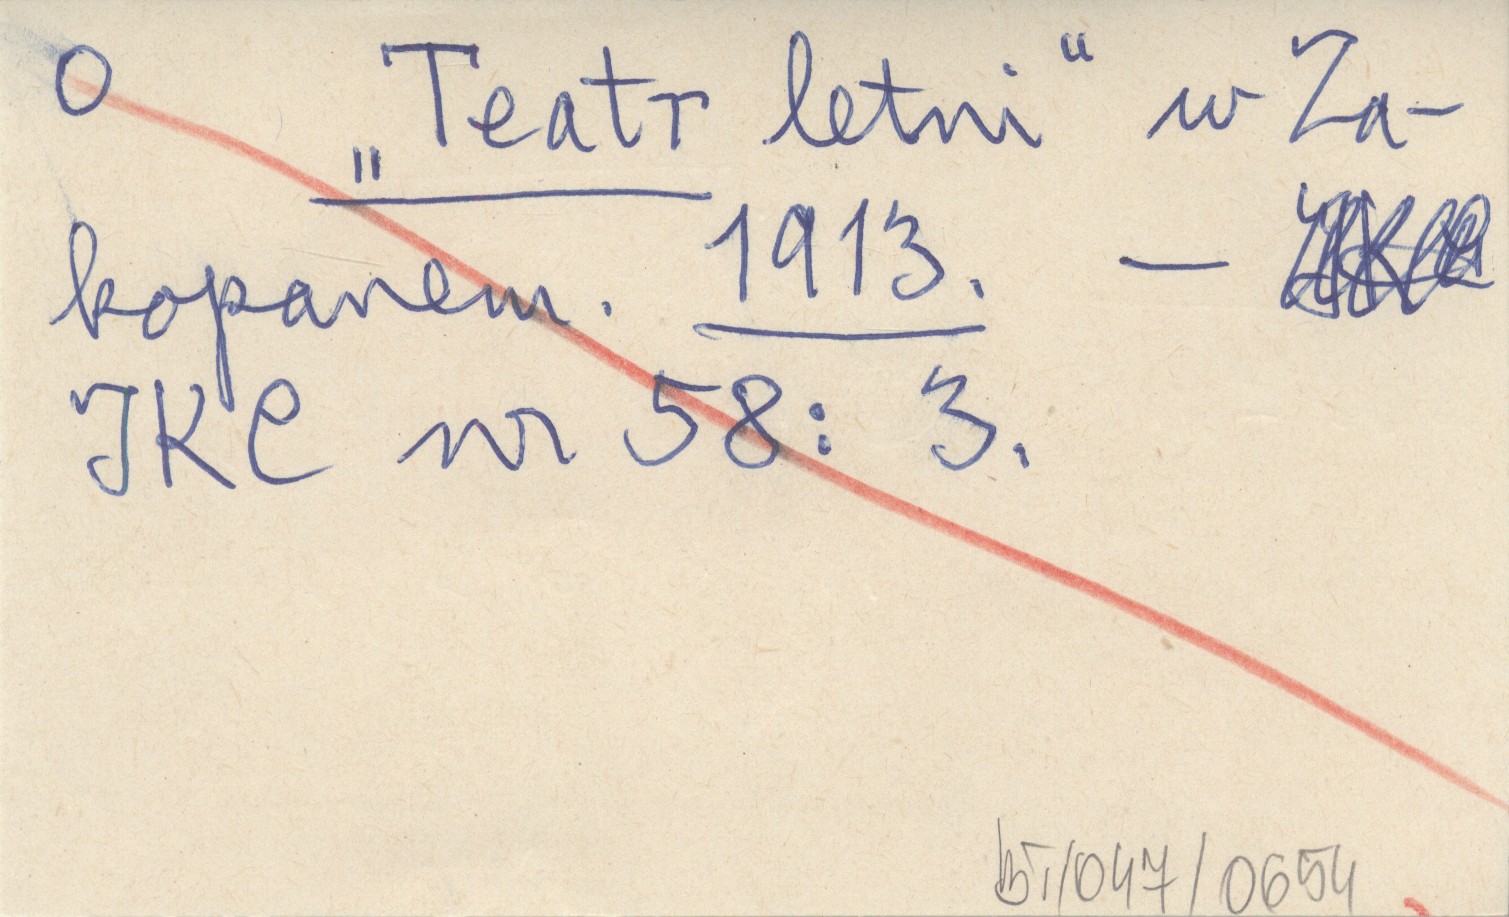 O „Teatr letni“ w Za-
kopanem. 1913. —
IKC nr 58: 3.
bT/047/0654